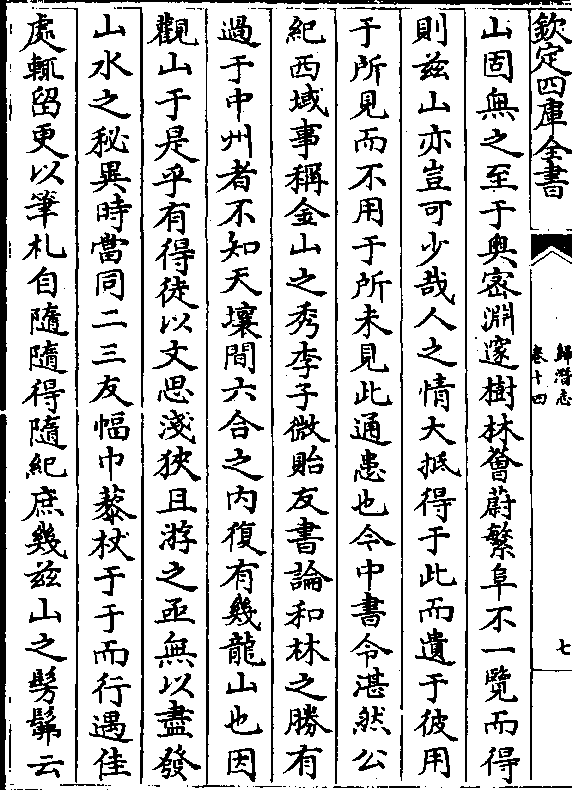 欽定四庫全書
歸潛志
卷十四
七
山固無之至于奥宻淵邃樹林薈蔚繁阜不一覽而得
則兹山亦豈可少哉人之情大抵得于此而遺于彼用
于所見而不用于所未見此通患也今中書令湛然公
紀西域事稱金山之秀李子微貽友書論和林之勝有
過于中州者不知天壤間六合之内復有幾龍山也因
觀山于是乎有得徒以文思淺狹且游之亟無以盡發
山水之秘異時當同二三友幅巾藜杖于于而行遇佳
處輒留更以筆札自隨隨得隨紀庶幾兹山之髣髴云